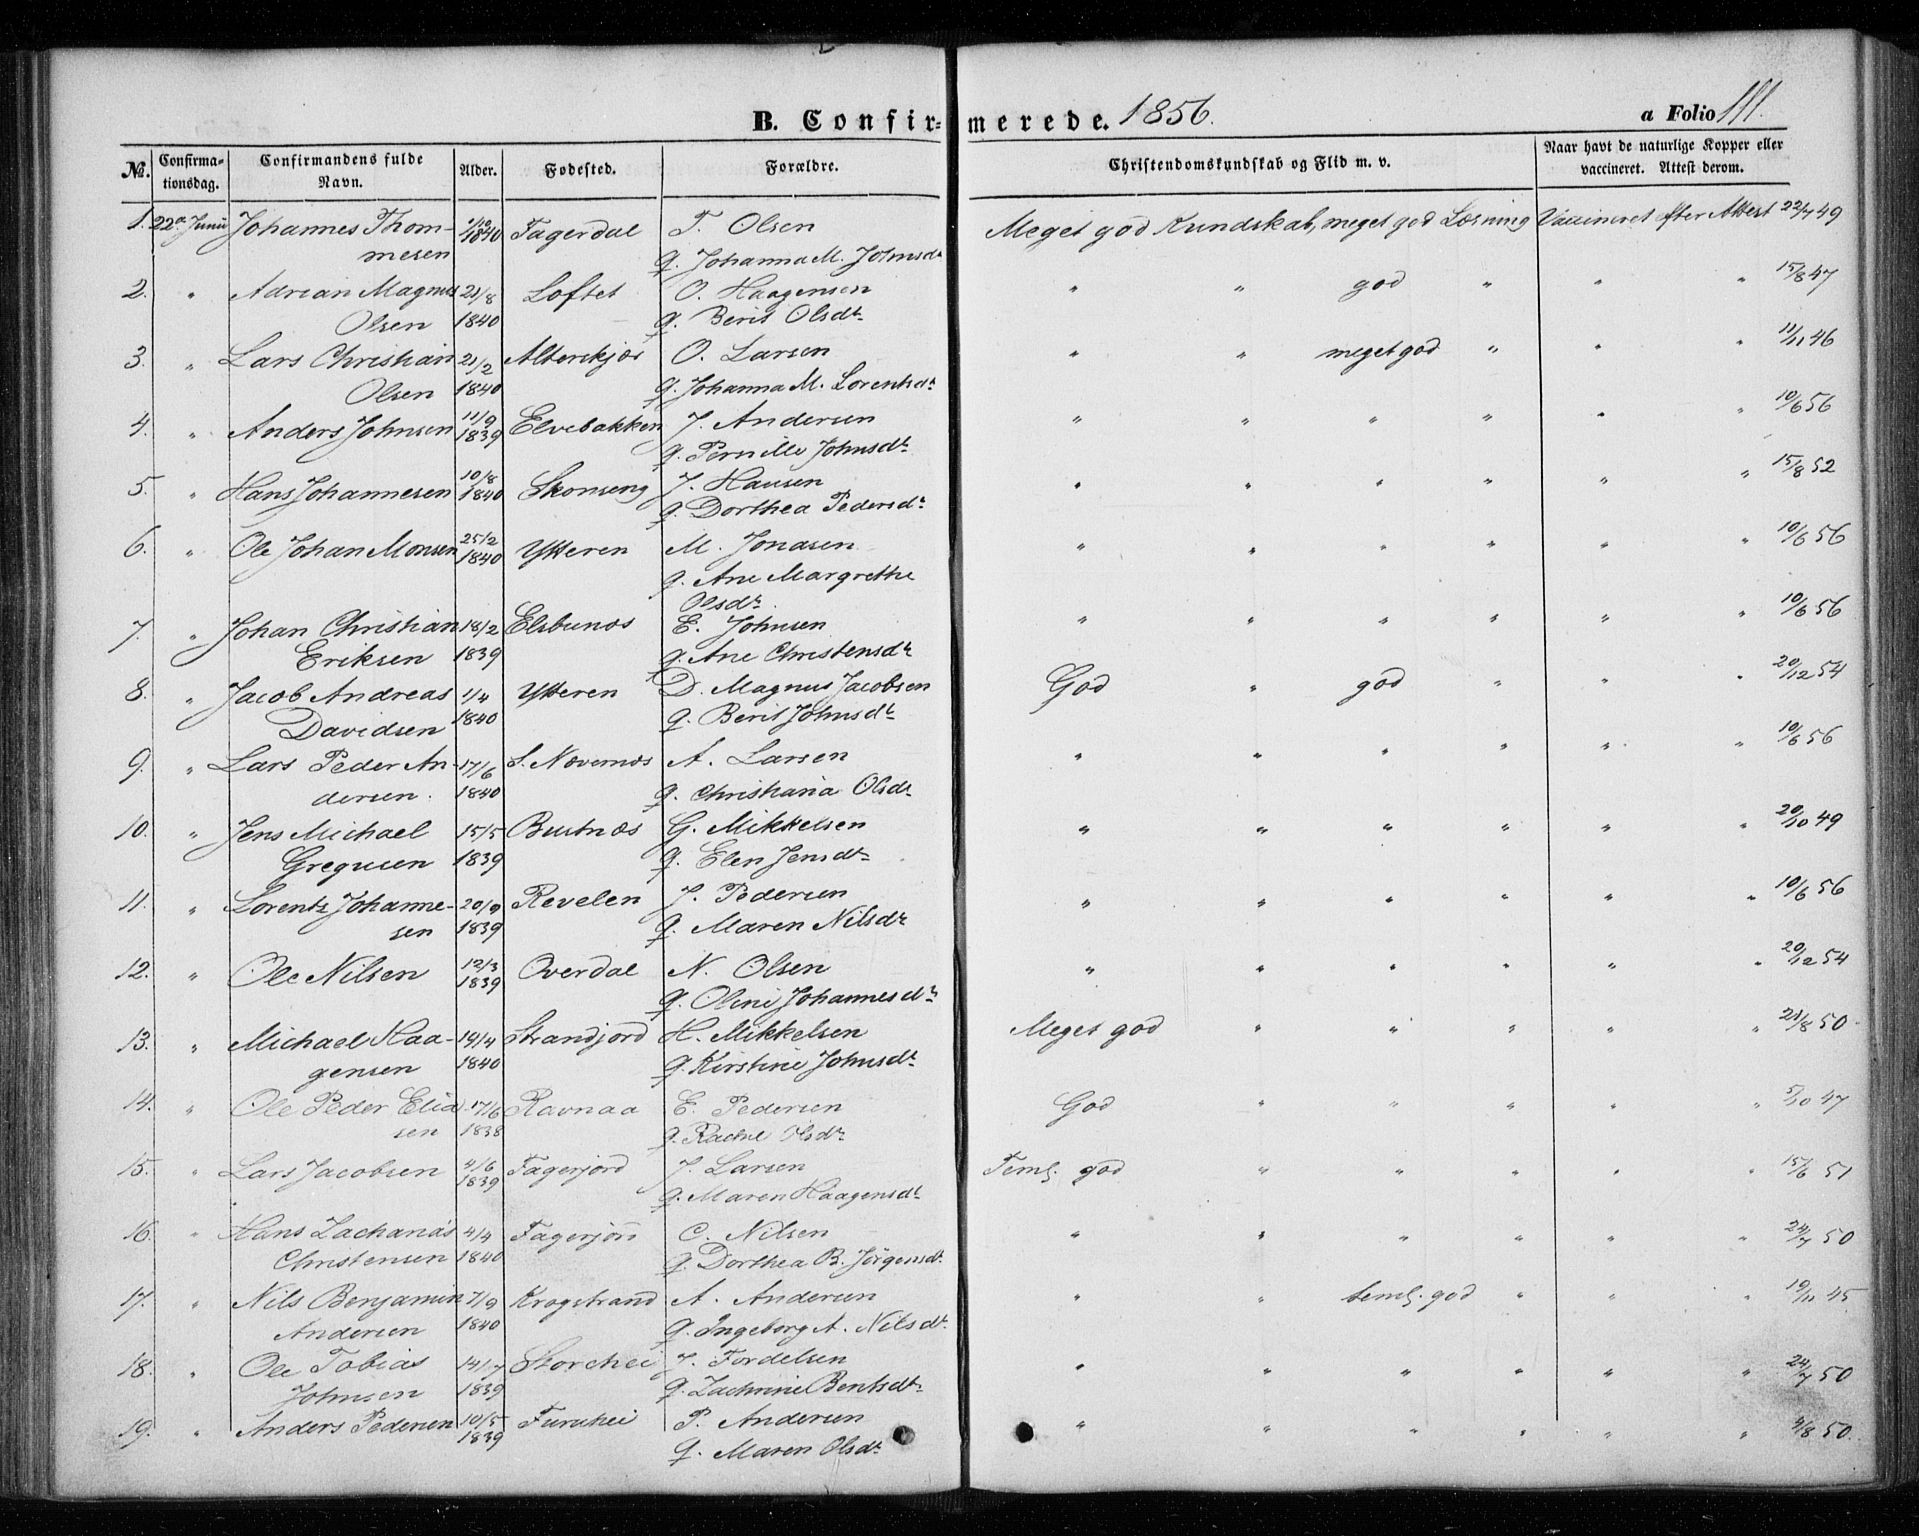 B. Confirmerede. 1856. a Folio 111.
No. Confirmationsdag. Confirmandens fulde Navn. Alder. Fødested. Forældre. Christendomskundskab og Flid m. v. Naar havt de naturlige Kopper eller vaccineret. Attest derom.
1. 22de Junii Johannes Thom- Fagerdal T. Olsen Meget god Kundskab, meget god Læsning Vaccineret efter Attest 22/7 49
mesen 1840 q. Johanna M. Johnsdr
2. " Adrian Magnus 21/8 Loftet O. Haagensen " " god " " " 15/8 47
Olsen 1840 q. Berit Olsdr
3. " Lars Christian 21/2 Alterskjær O. Larsen " " meget god " " " 11/11 46
Olsen 1840 q. Johanna M. Lorentsdr
4. " Anders Johnsen 11/9 1839 Elvebakken J. Andersen " " " " " " 10/6 56
q. Pernille Johnsdr
5. " Hans Johannesen 10/8 1840 Skonseng J. Hansen " " " " " " 15/8 52
q. Dorthea Pedersdr
6. " Ole Johan Monsen 25/2 1840 Ytteren M. Jonasen " " " " " " 10/6 56
q. Ane Margrethe
Olsdr
7 " Johan Christian 18/2 Elsbunæs E. Johnsen " " " " " " 10/6 56
Eriksen 1839 q. Ane Christensdr
8. " Jacob Andreas 1/4 Ytteren D. Magnus Jacobsen God " god " " " 20/12 54
Davidsen 1840 q. Berit Johnsdr
9. " Lars Peder An- 17/6 S. Nævernæs A. Larsen " " " " " " 10/6 56
dersen. 1840 q. Christiana Olsdr
10. " Jens Michael 15/5 Bustnæs G. Mikkelsen " " " " " " 20/10 49
Gregusen 1839 q. Elen Jensdr
11. " Lorentz Johanne- 20/9 Revelen J. Pedersen " " " " " " 10/6 56
sen 1839 q. Maren Nilsdr
12. " Ole Nilsen 12/3 1839 Overdal N. Olsen " " " " " " 20/12 54
q. Oline Johannesdr
13. " Michael Haa- 19/4 Strandjord H. Mikkelsen Meget god " " " " " 21/8 50
gensen 1840 q. Kirstine Johnsdr
14. " Ole Peder Elia- 17/6 Ravnaa E. Pedersen God " " " " " 5/10 47
sen 1838 q. Rachel Olsdr
15. " Lars Jacobsen 4/6 1839 Fagerjord J. Larsen Teml. god " " " " " 15/6 51
q. Maren Haagensdr
16. " Hans Zacharias 4/4 Fagerjord C. Nilsen " " " " " " 24/7 50
Christensen 1840 q. Dorthea B. Jörgensdr
17. " Nils Benjamin 7/9 Krogstrand A. Andersen " " teml. god " " " 19/11 45
Andersen 1840 q. Ingeborg A. Nilsdr
18. " Ole Tobias 14/7 Storehei J. Fordelsen " " " " " " 24/7 50
Johnsen 1839 q. Zachrine Bentsdr
19. " Anders Pedersen 10/5 1839 Furuhei P. Andersen " " " " " " 4/8 50.
q. Maren Olsdr